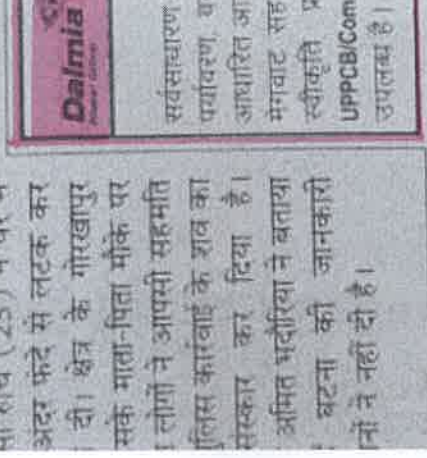 (25) ने घर में
अंदर फंदे से लटक कर
दी। क्षेत्र के गोरखापुर
सके माता-पिता मौके पर
लोगों ने आपसी सहमति
पुलिस कार्रवाई के शव का
संस्कार कर दिया है।
अमित भदौरिया ने बताया
घटना की जानकारी
नों ने नहीं दी है।
Dalmia
सर्वसाधारण
पर्यावरण,
आधारित
मेगावाट
स्वीकृति
UPPCB/Com
उपलब्ध है।